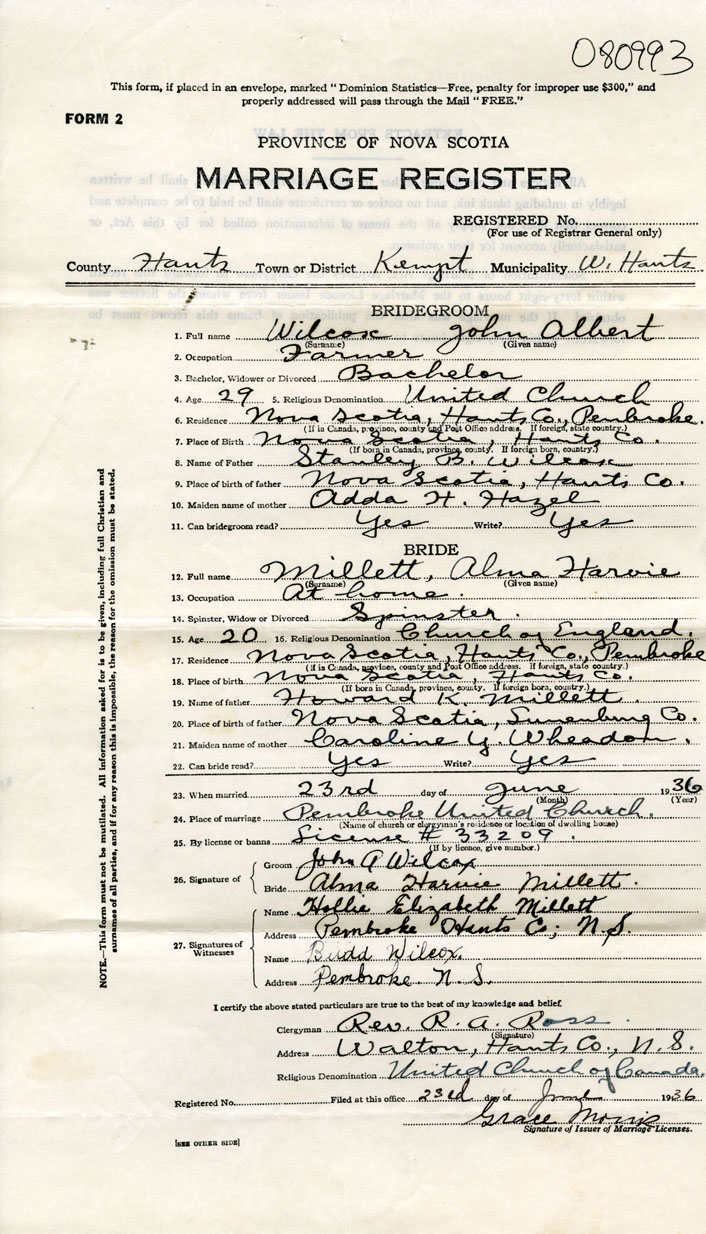 080993
This form, if placed in an envelope, marked "Dominion Statistics—Free, penalty for improper use $300," and
properly addressed will pass through the Mail "FREE."
FORM 2
PROVINCE OF NOVA SCOTIA
MARRIAGE REGISTER
REGISTERED No.
(For use of Registrar General only)
County Hants Town or District Kempt Municipality W. Hants
BRIDEGROOM
1. Full name Wilcox John Albert
(Surname) (Given name)
2. Occupation Farmer
3. Bachelor, Widower or Divorced Bachelor
4. Age 29 5. Religious Denomination United Church
6. Residence Nova Scotia, Hants Co., Pembroke.
(If in Canada, province, county and Post Office address. If foreign, state country.)
7. Place of Birth Nova Scotia, Hants Co.
(If born in Canada, province, county. If foreign born, country.)
8. Name of Father Stanley B. Wilcox
9. Place of birth of father Nova Scotia, Hants Co.
10. Maiden name of mother Adda H. Hazel
11. Can bridegroom read? Yes Write? Yes
BRIDE
12. Full name Millett, Alma Harvie
(Surname) (Given name)
13. Occupation At home.
14. Spinster, Widow or Divorced Spinster.
15. Age 20 16. Religious Denomination Church of England.
17. Residence Nova Scotia, Hants Co., Pembroke
(If in Canada, province, county and Post Office address. If foreign, state country.)
18. Place of birth Nova Scotia, Hants Co.
(If born in Canada, province, county. If foreign born, country.)
19. Name of father Howard K. Millett.
20. Place of birth of father Nova Scotia, Lunenburg Co.
21. Maiden name of mother Caroline Y. Wheadon.
22. Can bride read? Yes Write? Yes
23. When married 23rd day of June 1936
(Month) (Year)
24. Place of marriage Pembroke United Church.
(Name of church or clergyman's residence or location of dwelling house)
25. By license or banns License # 33209.
(If by licence, give number.)
26. Signature of
Groom John A Wilcox
Bride Alma Harvie Millett.
27. Signatures of Witnesses
Name Hollie Elizabeth Millett
Address Pembroke Hants Co; N.S.
Name Budd Wilcox.
Address Pembroke N.S.
I certify the above stated particulars are true to the best of my knowledge and belief.
Clergyman Rev. R. A. Ross.
(Signature)
Address Walton, Hants Co., N.S.
Religious Denomination United Church of Canada.
Registered No. Filed at this office 23rd day of June 1936
Grace Morris
Signature of Issuer of Marriage Licenses.
[SEE OTHER SIDE]
NOTE.—This form must not be mutilated. All information asked for is to be given, including full Christian and
surnames of all parties, and if for any reason this is impossible, the reason for the omission must be stated.